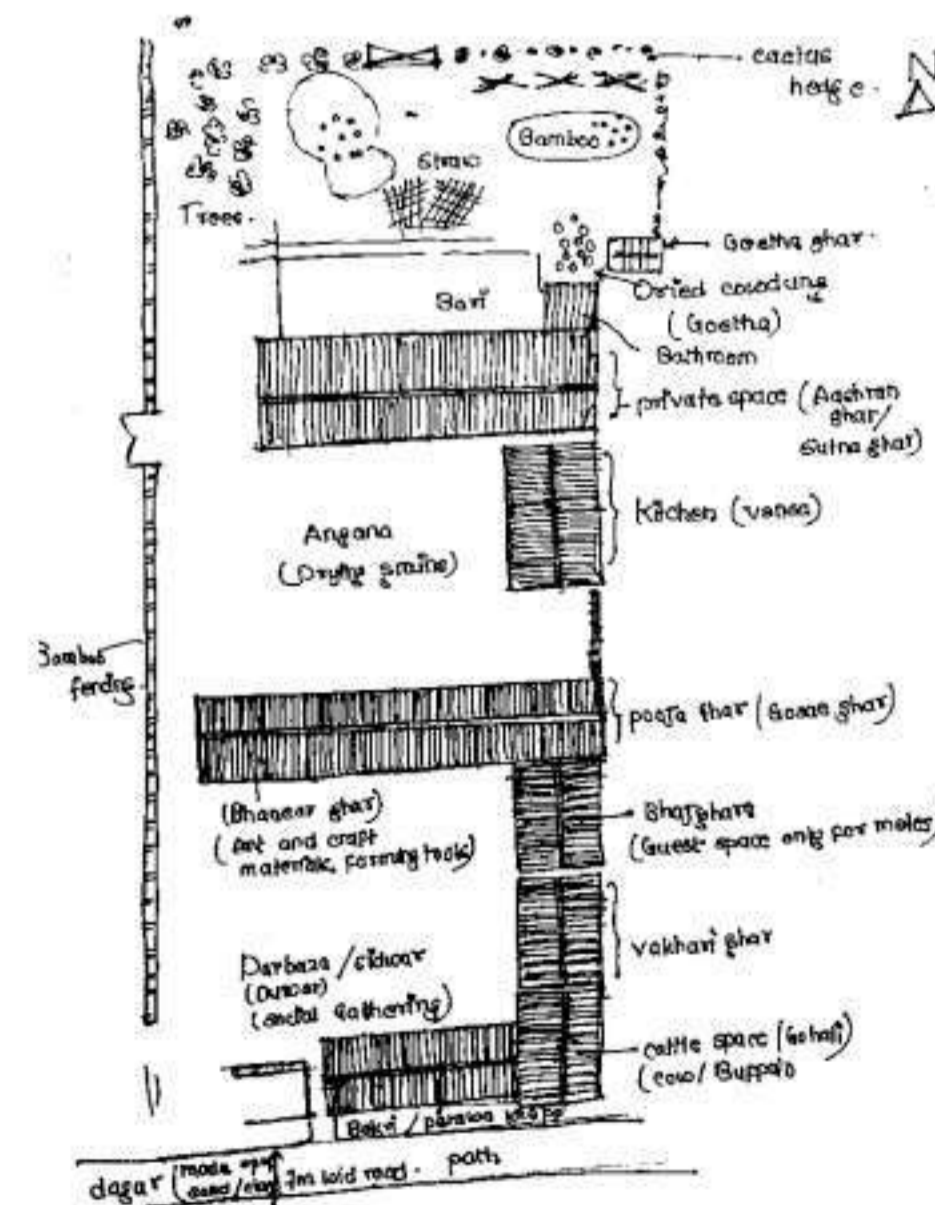 cactus
hedge.
N
Bamboo
Straw
Trees.
Goetha ghar.
Dried cowdung
(Goetha)
Bari
Bathroom
private space (Aashran
ghar/
Sutna ghar)
Kitchen (vansa)
Angana
(Drying grains)
Bamboo
fencing
pooja ghar (Gosae ghar)
(Bhancar ghar)
(Art and craft
materials, farming tools)
(Guest space only for males)
vakhari ghar
Darbaza / sidwar
(social Gathering)
cattle space (Gohali)
(cow/ Buffalo
Bakri /
dagar (made
sand/clay 7m wid road. path